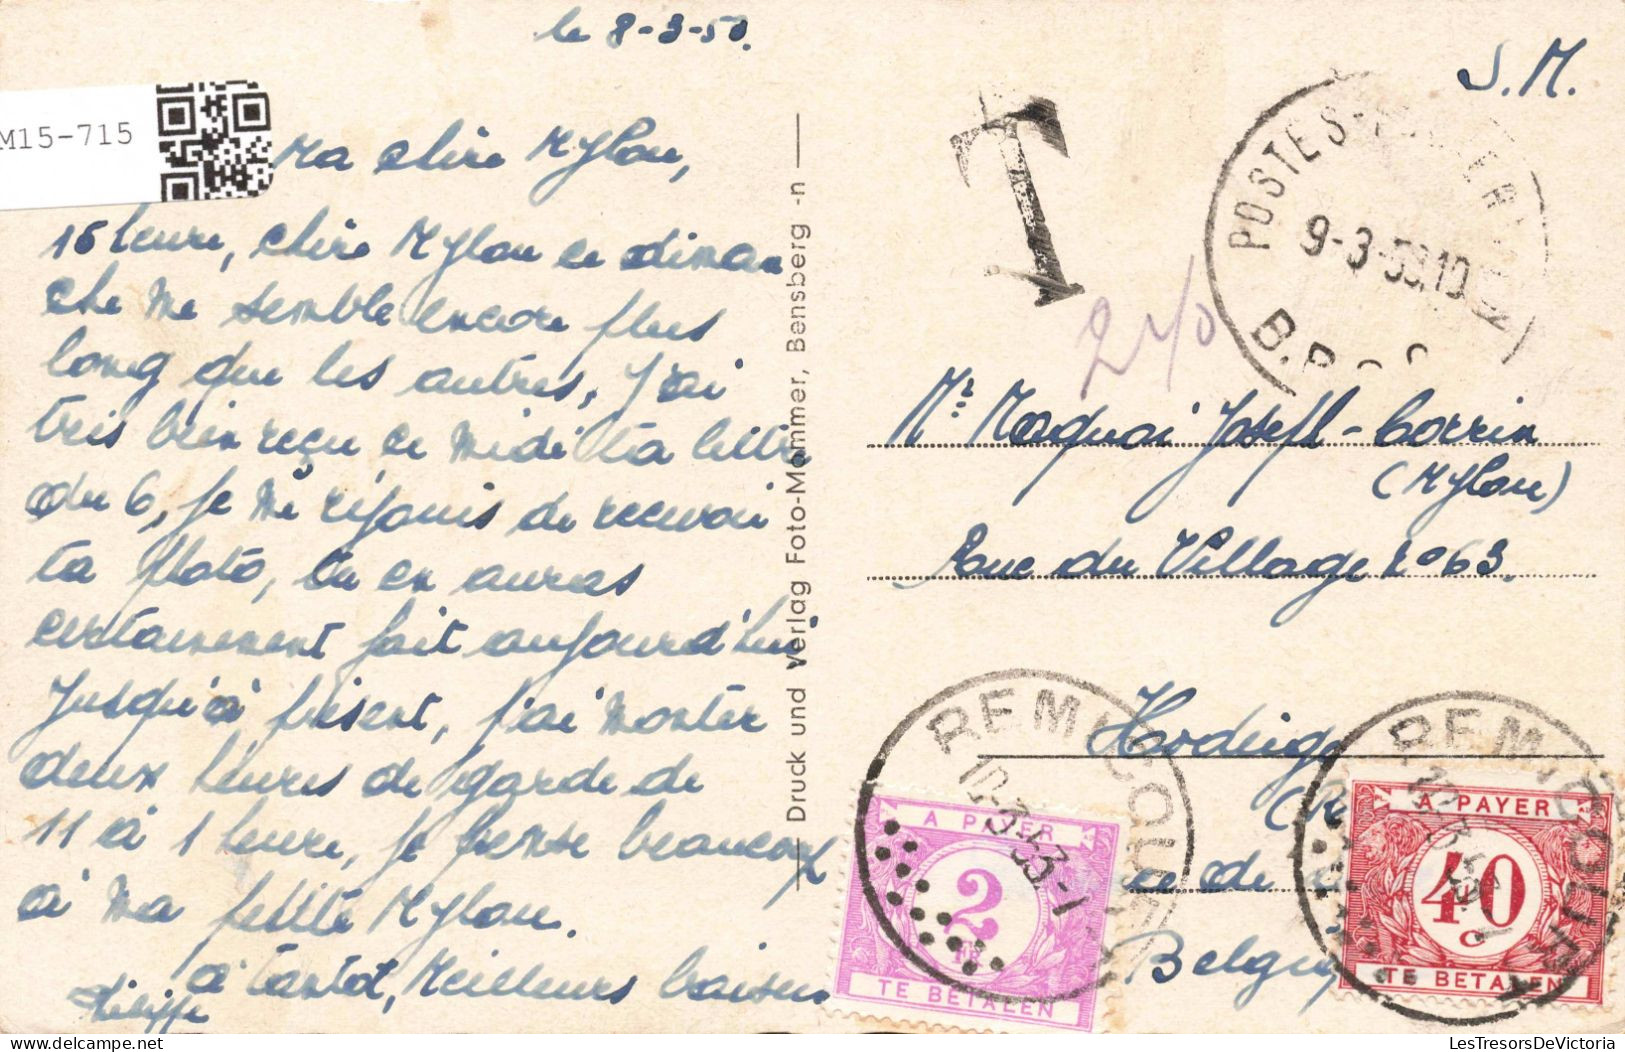 le 8-3-53.
S.M.
M15-715
T
POSTES-
9-3-53.10
B.P.
2 40
Ma chère Mylou,
16 heure, chère Mylou ce diman
che me semble encore plus
long que les autres, J'ai
très bien reçu ce midi ta lettre
du 6, je me réjouis de recevoir
ta photo, tu en auras
certainement fait aujourd'hui
Jusqu'à présent, j'ai monter
deux heures de garde de
11 à 1 heure, je pense beaucoup
à ma petite Mylou.
à tantot, Meilleurs baisers
Philippe
Druck und Verlag Foto-Mommer, Bensberg -n
Mr Maquoi Joseph-Corrin
(Mylou)
Rue du Village no 63.
Belgi
REMICOURT
10-3-53-1
A PAYER
2
FR
TE BETALEN
REMICOURT
A PAYER
40
C
TE BETALEN
delcampe.net
LesTresorsDeVictoria